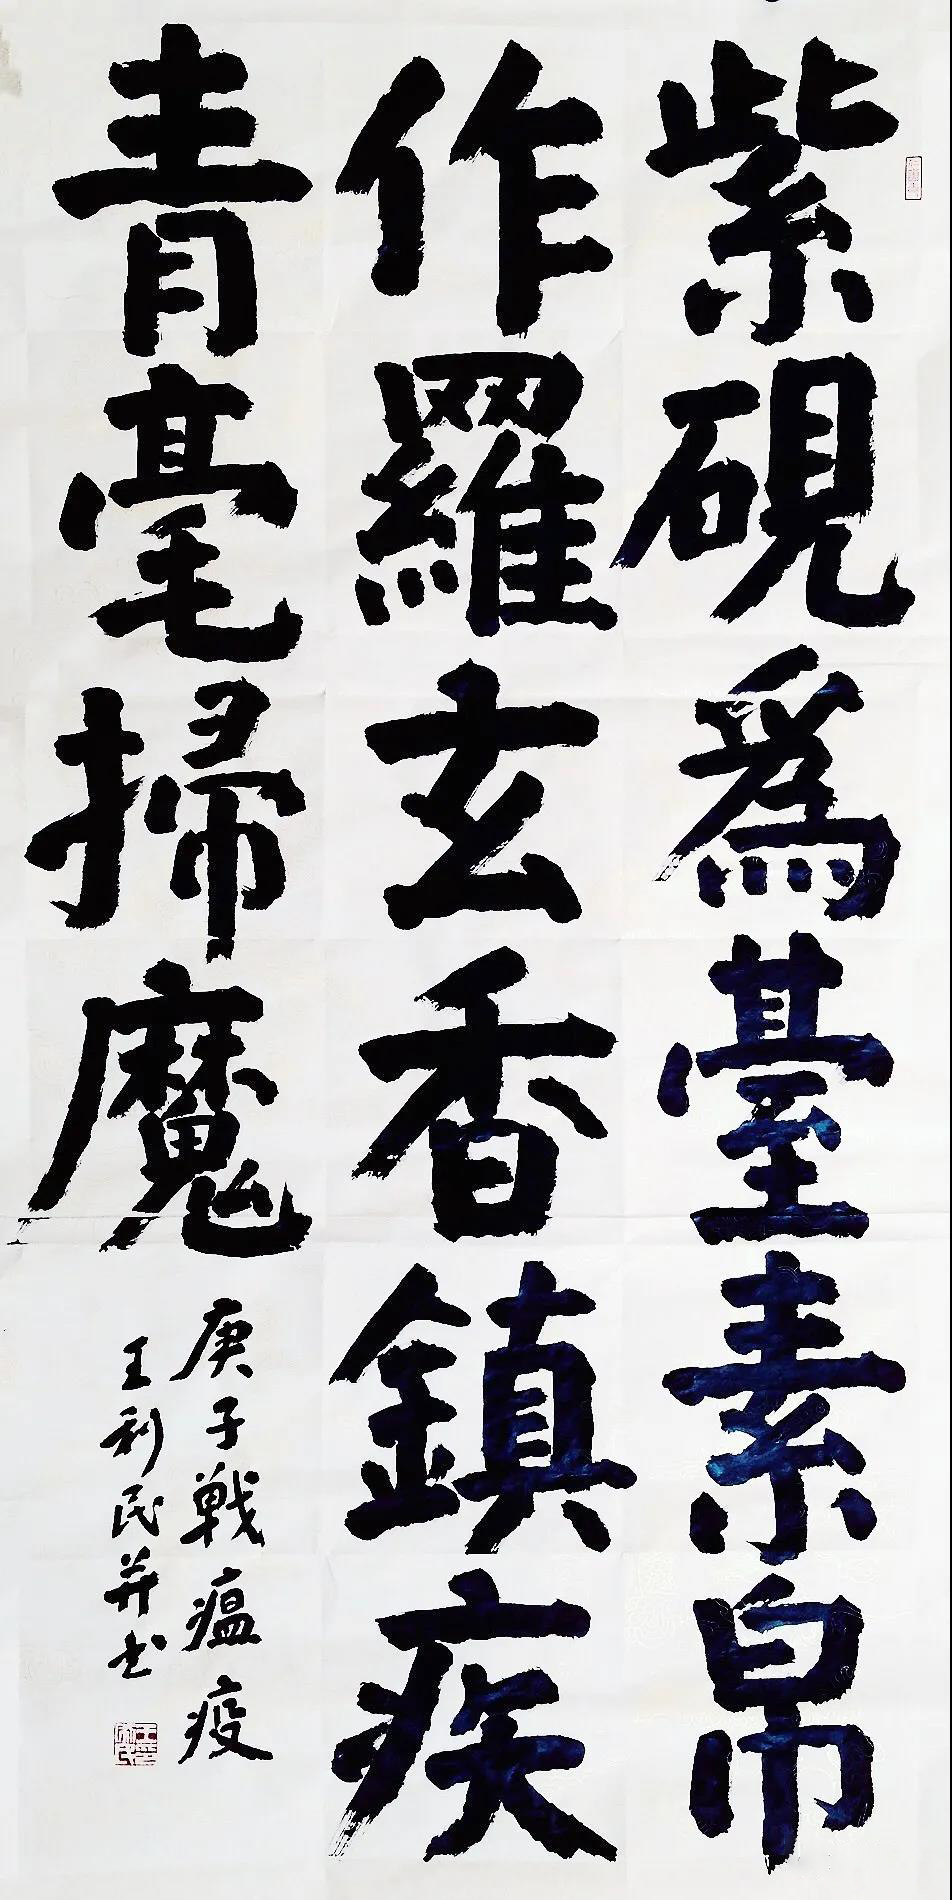 紫硯爲臺素帛
作羅玄香鎮疾
青毫掃魔
庚子戰瘟疫
王利民并书